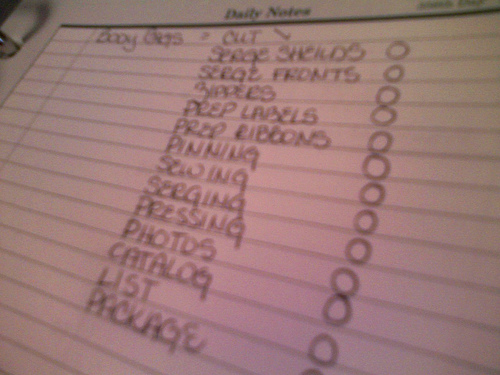 Daily Notes
Body Bags = CUT
SERGE SHEILDS
SERGE FRONTS
ZIPPERS
PREP LABELS
PREP RIBBONS
PINNING
SEWING
SERGING
PRESSING
PHOTOS
CATALOG
LIST
PACKAGE